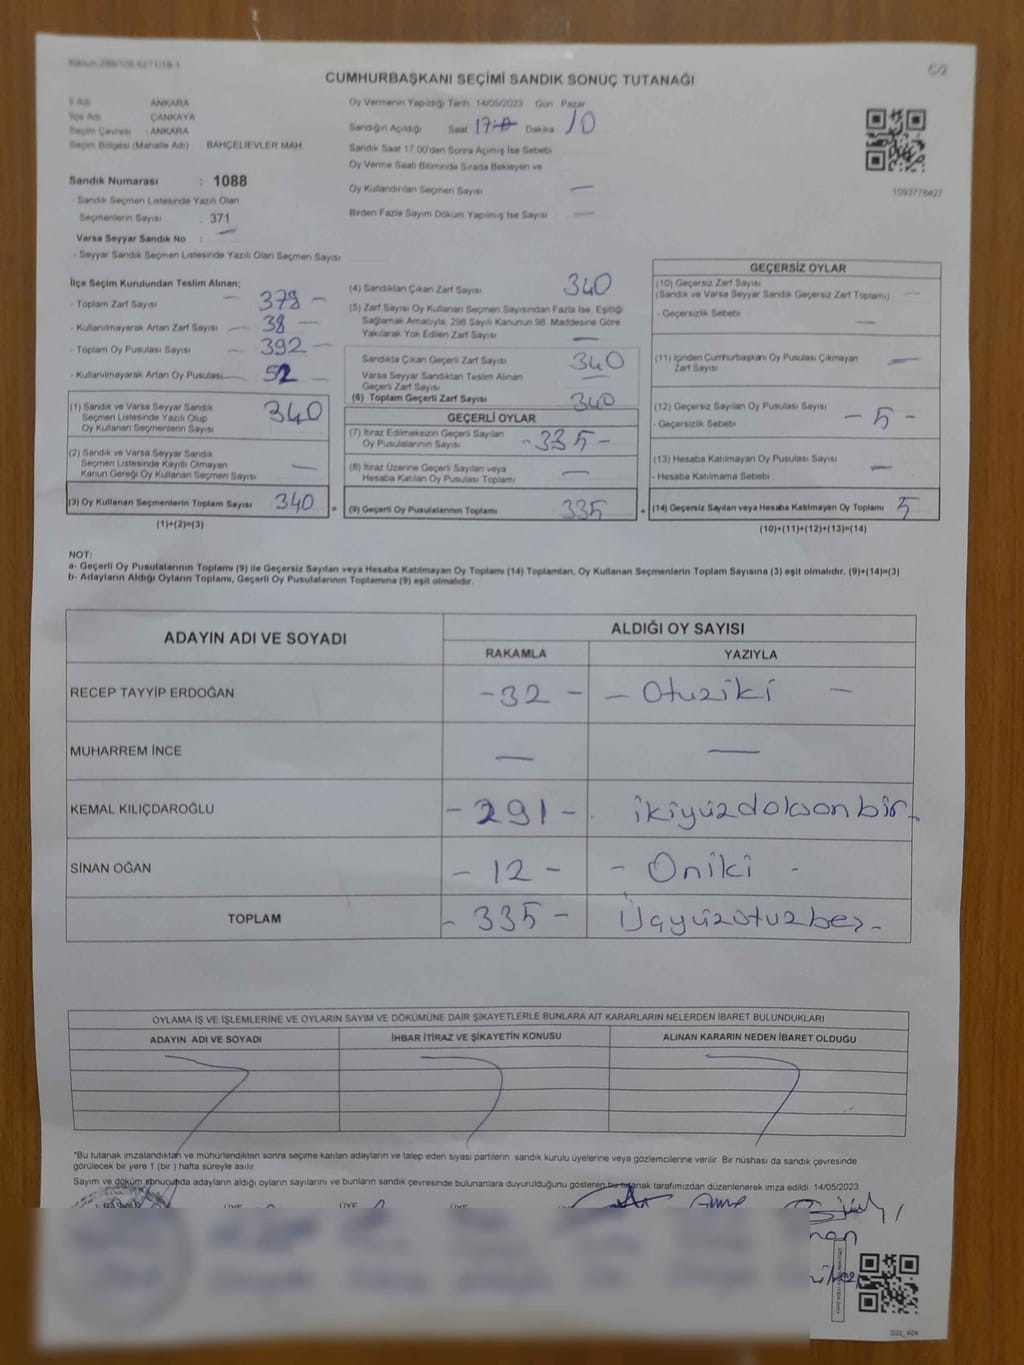 C/2
CUMHURBAŞKANI SEÇİMİ SANDIK SONUÇ TUTANAĞI
İl Adı ANKARA
İlçe Adı ÇANKAYA
Seçim Çevresi : ANKARA
Seçim Bölgesi (Mahalle Adı) BAHÇELİEVLER MAH.
Sandık Numarası : 1088
- Sandık Seçmen Listesinde Yazılı Olan
Seçmenlerin Sayısı : 371
Varsa Seyyar Sandık No : —
- Seyyar Sandık Seçmen Listesinde Yazılı Olan Seçmen Sayısı
Oy Vermenin Yapıldığı Tarih 14/05/2023 Gün : Pazar
Sandığın Açıldığı Saat 17 Dakika 10
Sandık Saat 17.00'den Sonra Açımış İse Sebebi
Oy Verme Saati Bitiminde Sırada Bekleyen ve
Oy Kullandırılan Seçmen Sayısı —
Birden Fazla Sayım Döküm Yapılmış İse Sayısı —
1093778427
İlçe Seçim Kurulundan Teslim Alınan;
- Toplam Zarf Sayısı — 378 —
- Kullanılmayarak Artan Zarf Sayısı — 38 —
- Toplam Oy Pusulası Sayısı — 392 —
- Kullanılmayarak Artan Oy Pusulası — 52 —
(1) Sandık ve Varsa Seyyar Sandık
Seçmen Listesinde Yazılı Olup
Oy Kullanan Seçmenlerin Sayısı 340
(2) Sandık ve Varsa Seyyar Sandık
Seçmen Listesinde Kayıtlı Olmayan
Kanun Gereği Oy Kullanan Seçmen Sayısı —
(3) Oy Kullanan Seçmenlerin Toplam Sayısı 340
(1)+(2)=(3)
(4) Sandıktan Çıkan Zarf Sayısı 340
(5) Zarf Sayısı Oy Kullanan Seçmen Sayısından Fazla İse, Eşitliği
Sağlamak Amacıyla, 298 Sayılı Kanunun 98. Maddesine Göre
Yakılarak Yok Edilen Zarf Sayısı —
Sandıkta Çıkan Geçerli Zarf Sayısı 340
Varsa Seyyar Sandıktan Teslim Alınan
Geçerli Zarf Sayısı —
(6) Toplam Geçerli Zarf Sayısı 340
GEÇERLİ OYLAR
(7) İtiraz Edilmeksizin Geçerli Sayılan
Oy Pusulalarının Sayısı -335-
(8) İtiraz Üzerine Geçerli Sayılan veya
Hesaba Katılan Oy Pusulası Toplamı —
= (9) Geçerli Oy Pusulalarının Toplamı 335
GEÇERSİZ OYLAR
(10) Geçersiz Zarf Sayısı
(Sandık ve Varsa Seyyar Sandık Geçersiz Zarf Toplamı) —
- Geçersizlik Sebebi —
(11) İçinden Cumhurbaşkanı Oy Pusulası Çıkmayan
Zarf Sayısı —
(12) Geçersiz Sayılan Oy Pusulası Sayısı
- Geçersizlik Sebebi - 5 -
(13) Hesaba Katılmayan Oy Pusulası Sayısı —
- Hesaba Katılmama Sebebi
+ (14) Geçersiz Sayılan veya Hesaba Katılmayan Oy Toplamı 5
(10)+(11)+(12)+(13)=(14)
NOT:
a- Geçerli Oy Pusulalarının Toplamı (9) ile Geçersiz Sayılan veya Hesaba Katılmayan Oy Toplamı (14) Toplamları, Oy Kullanan Seçmenlerin Toplam Sayısına (3) eşit olmalıdır. (9)+(14)=(3)
b- Adayların Aldığı Oyların Toplamı, Geçerli Oy Pusulalarının Toplamına (9) eşit olmalıdır.
ADAYIN ADI VE SOYADI ALDIĞI OY SAYISI
RAKAMLA YAZIYLA
RECEP TAYYİP ERDOĞAN -32- - Otuziki -
MUHARREM İNCE — —
KEMAL KILIÇDAROĞLU -291- ikiyüzdoksanbir-
SİNAN OĞAN -12- - Oniki -
TOPLAM -335- Üçyüzotuzbeş-
OYLAMA İŞ VE İŞLEMLERİNE VE OYLARIN SAYIM VE DÖKÜMÜNE DAİR ŞİKAYETLERLE BUNLARA AİT KARARLARIN NELERDEN İBARET BULUNDUKLARI
ADAYIN ADI VE SOYADI İHBAR İTİRAZ VE ŞİKAYETİN KONUSU ALINAN KARARIN NEDEN İBARET OLDUĞU
*Bu tutanak imzalandıktan ve mühürlendikten sonra seçime katılan adayların ve talep eden siyasi partilerin sandık kurulu üyelerine veya gözlemcilerine verilir. Bir nüshası da sandık çevresinde
görülecek bir yere 1 (bir ) hafta süreyle asılır.
Sayım ve döküm sonucunda adayların aldığı oyların sayılarını ve bunların sandık çevresinde bulunanlara duyurulduğunu gösteren bu tutanak tarafımızdan düzenlenerek imza edildi. 14/05/2023